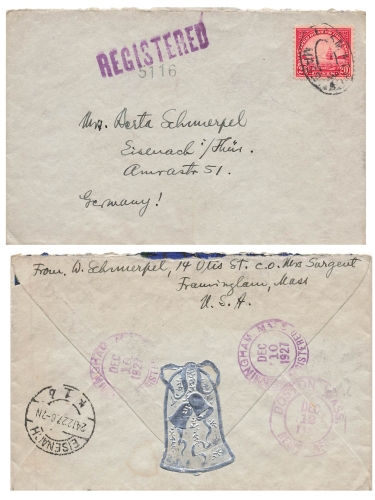 REGISTERED
5116
20
Mrs. Berta Schmerpel
Eisenach i/Thür.
Amrastr 51.
Germany!
From. W. Schmerpel, 14 Otis St. c.o. Mrs Sargent
Framingham, Mass
U.S.A.
FRAMINGHAM MASS.
DEC
10
1927
REGISTERED
FRAMINGHAM MASS.
DEC
10
1927
BOSTON, MASS.
DEC
EISENACH
24.12.27.6-7N
* 1 b